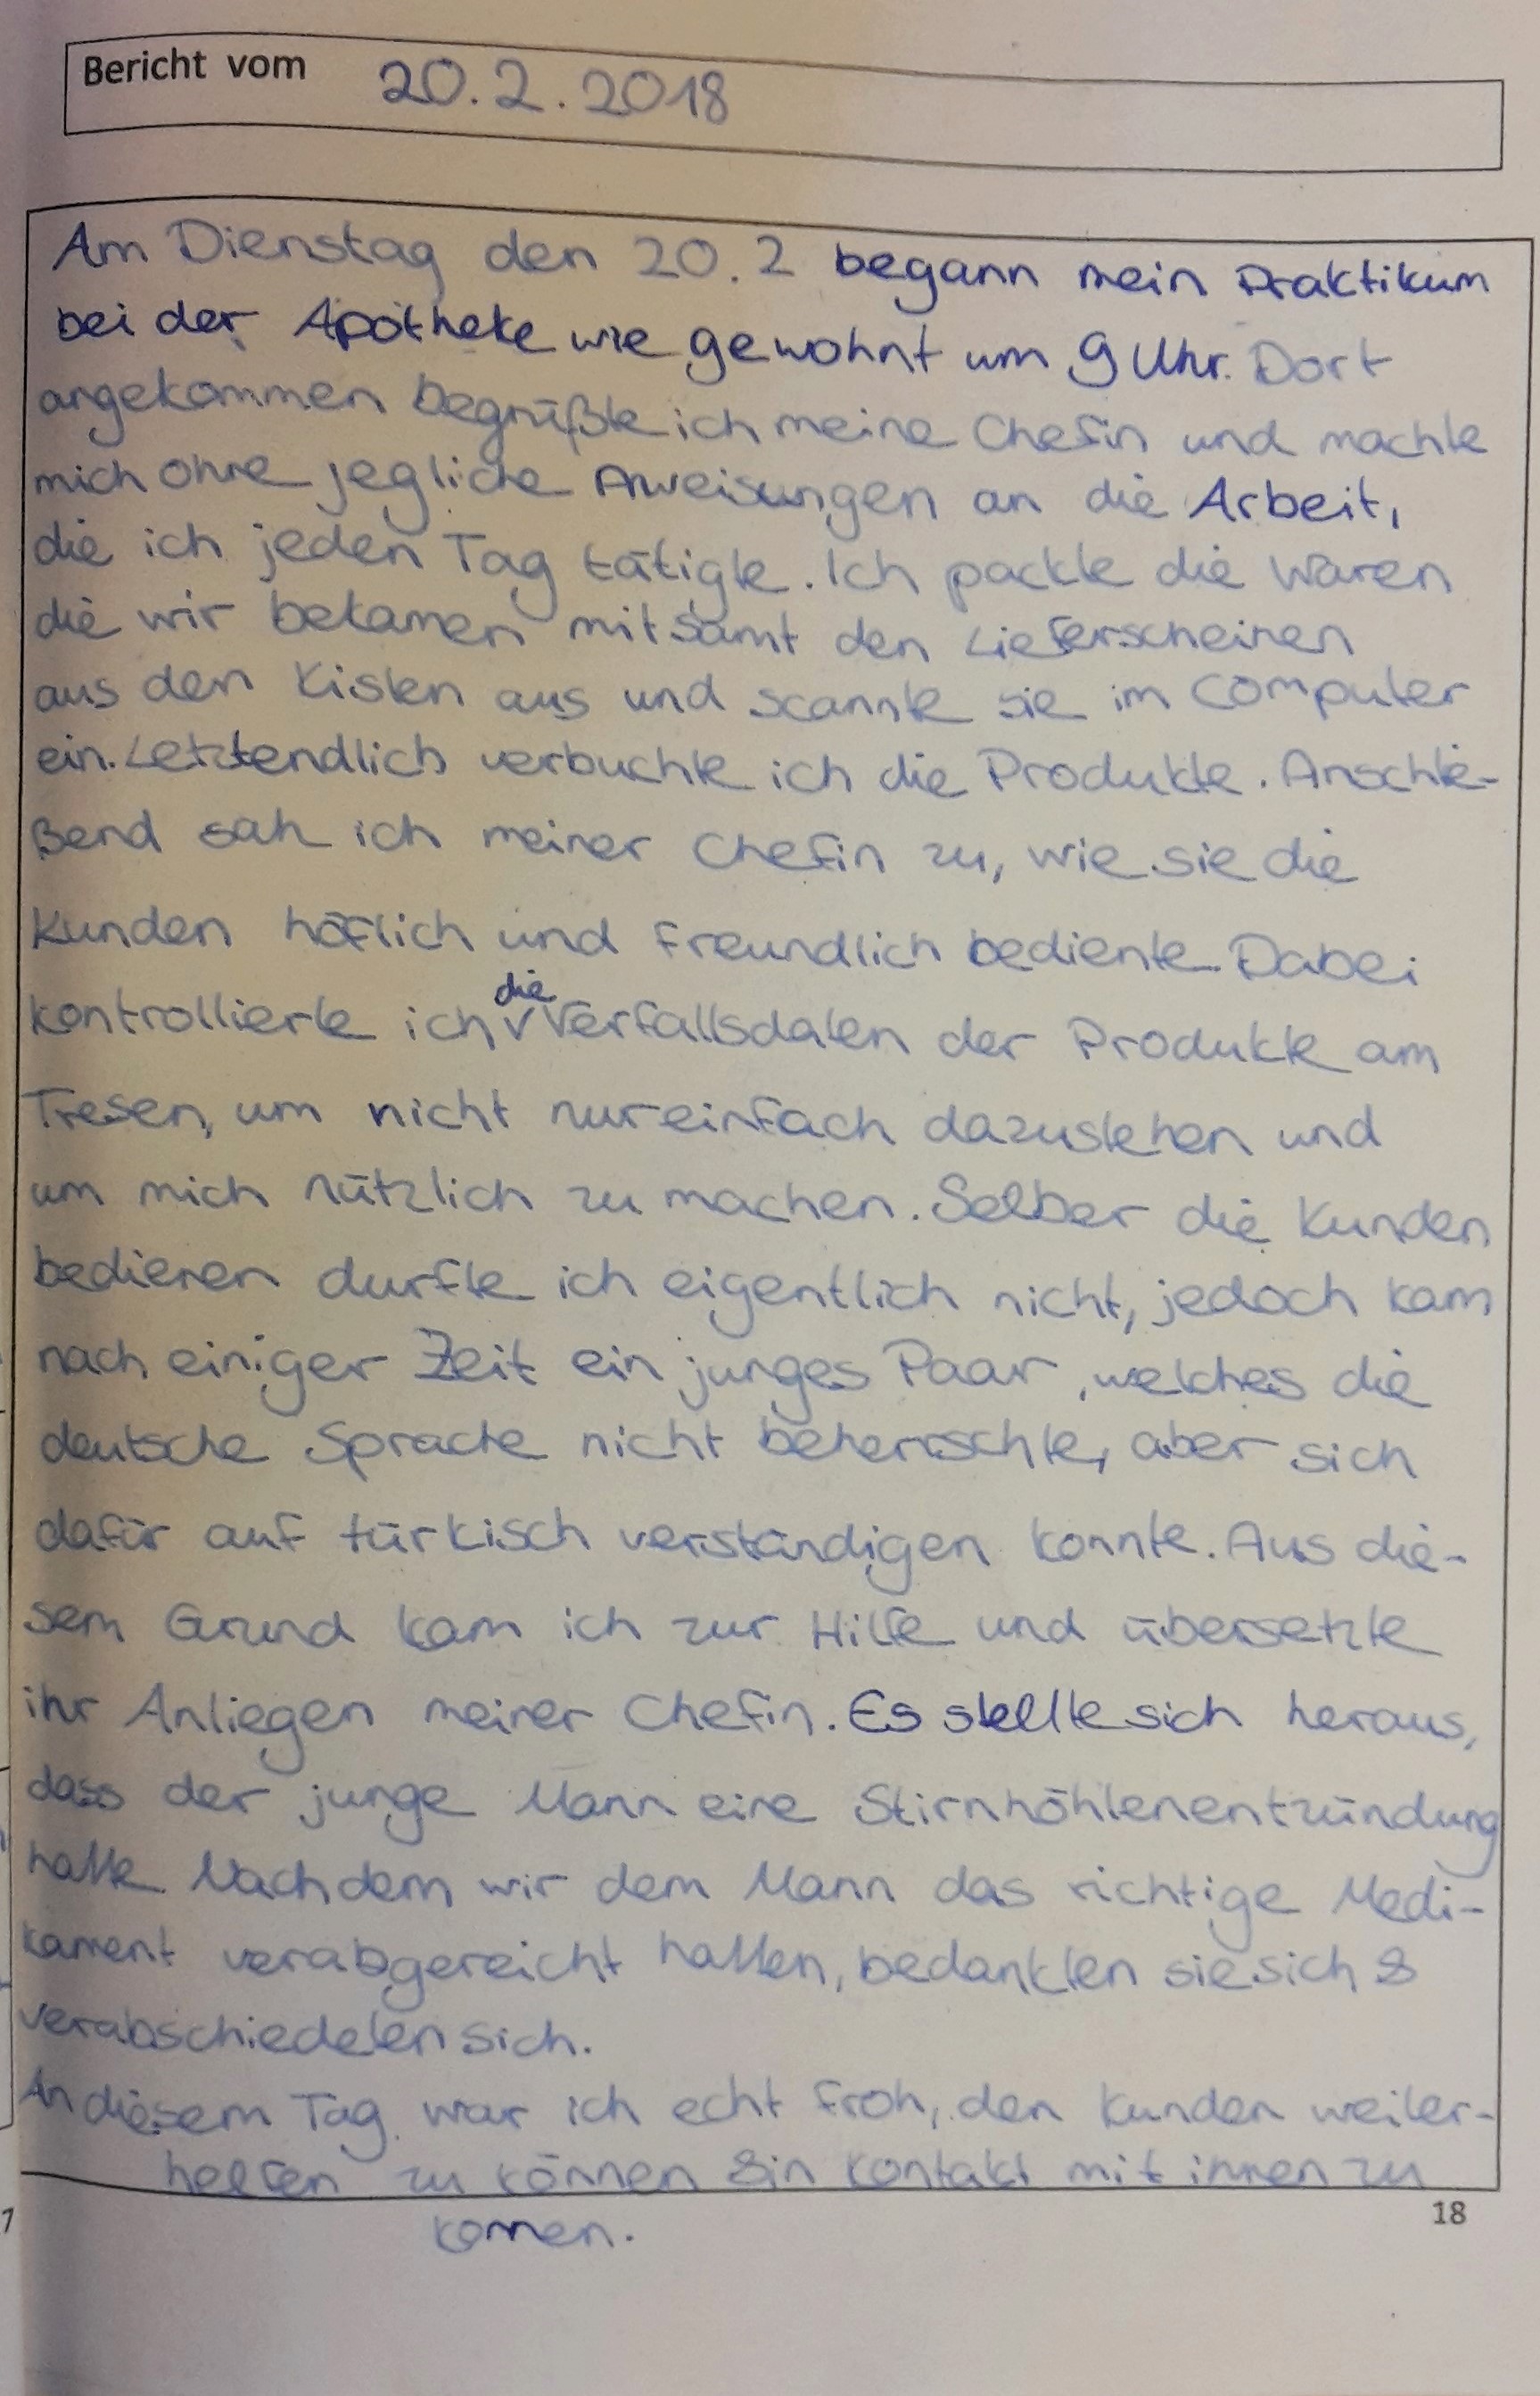 Bericht vom 20.2.2018
Am Dienstag den 20.2 begann mein Praktikum
bei der Apotheke wie gewohnt um 9 Uhr. Dort
angekommen begrüßte ich meine Chefin und machte
mich ohne jegliche Anweisungen an die Arbeit,
die ich jeden Tag tätigte. Ich packte die Waren
die wir bekamen mitsamt den Lieferscheinen
aus den Kisten aus und scannte sie im Computer
ein. Letztendlich verbuchte ich die Produkte. Anschlie-
ßend sah ich meiner Chefin zu, wie sie die
Kunden höflich und freundlich bediente. Dabei
kontrollierte ich die Verfallsdaten der Produkte am
Tresen, um nicht nur einfach dazustehen und
um mich nützlich zu machen. Selber die Kunden
bedienen durfte ich eigentlich nicht, jedoch kam
nach einiger Zeit ein junges Paar, welches die
deutsche Sprache nicht beherrschte, aber sich
dafür auf türkisch verständigen konnte. Aus die-
sem Grund kam ich zur Hilfe und übersetzte
ihr Anliegen meiner Chefin. Es stellte sich heraus,
dass der junge Mann eine Stirnhöhlenentzündung
hatte. Nachdem wir dem Mann das richtige Medi-
kament verabgereicht hatten, bedankten sie sich &
verabschiedeten sich.
An diesem Tag war ich echt froh, den Kunden weiter-
helfen zu können & in Kontakt mit ihnen zu
kommen.
18